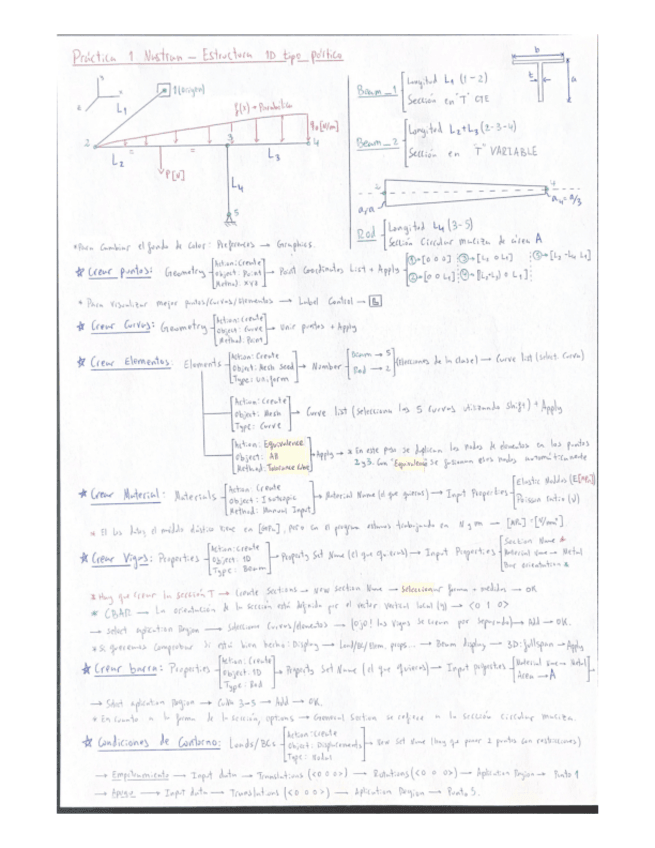 Práctica 1 Nastran – Estructura 1D tipo pórtico
1 (origen)
L1
f(x) → Parabólica
q0 [N/m]
2
3
4
L2
L3
P[N]
L4
5
Beam_1
Longitud L1 (1-2)
Sección en "T" CTE
b
t
a
Beam_2
Longitud L2+L3 (2-3-4)
Sección en "T" VARIABLE
a4 = a/3
Rod
Longitud L4 (3-5)
Sección Circular maciza de área A
*Para cambiar el fondo de color: Preferences → Graphics.
☆ Crear puntos: Geometry
Action: Create
Object: Point
Method: XYZ
→ Point Coordinates List + Apply
① → [0 0 0]
② → [0 0 L1]
③ → [L2 0 L1]
④ → [(L2+L3) 0 L1]
⑤ → [L2 -L4 L1]
* Para visualizar mejor puntos/curvas/elementos → Label Control →
☆ Crear Curvas: Geometry
Action: Create
Object: Curve
Method: Point
→ Unir puntos + Apply
☆ Crear Elementos: Elements
Action: Create
Object: Mesh Seed
Type: Uniform
→ Number
Beam → 5
Rod → 2
(elecciones de la clase) → Curve list (select. Curva)
Action: Create
Object: Mesh
Type: Curve
→ Curve list (selecciona las 5 curvas utilizando shift) + Apply
Action: Equivalence
Object: All
Method: Tolerance Cube
→ Apply → * En este paso se duplican los nodos de elementos en los puntos
2 y 3. Con "Equivalence" se fusionan esos nodos automáticamente
☆ Crear Material: Materials
Action: Create
Object: Isotropic
Method: Manual Input
→ Material Name (el que quieras) → Input Properties
Elastic Modulus (E[MPa])
Poisson Ratio (ν)
☆ Crear Vigas: Properties
Action: Create
Object: 1D
Type: Beam
→ Property Set Name (el que quieras) → Input Properties
Section Name *
Material Name → Metal
Bar orientation *
* Hay que crear la sección T → Create Sections → New section Name → Seleccionar forma + medidas → OK
* CBAR → La orientación de la sección está definida por el vector vertical local (y) → <0 1 0>
→ Select Aplication Region → Seleccionar Curvas/elementos → (ojo! las vigas se crean por separado) → Add → OK.
* Si queremos comprobar si está bien hecho: Display → Load/BC/Elem. props... → Beam display → 3D: fullspan → Apply
☆ Crear barra: Properties
Action: Create
Object: 1D
Type: Rod
→ Property Set Name (el que quieras) → Input properties
Material Name → Metal
Area → A
→ Select Aplication Region → Curva 3-5 → Add → OK.
* En cuanto a la forma de la sección, options → General Section se refiere a la sección circular maciza.
☆ Condiciones de Contorno: Loads/BCs
Action: Create
Object: Displacements
Type: Nodal
→ New Set Name (hay que poner 2 puntos con restricciones)
→ Empotramiento → Input data → Translations (<0 0 0>) → Rotations (<0 0 0>) → Aplication Region → Punto 1
→ Apoyo → Input data → Translations (<0 0 0>) → Aplication Region → Punto 5.